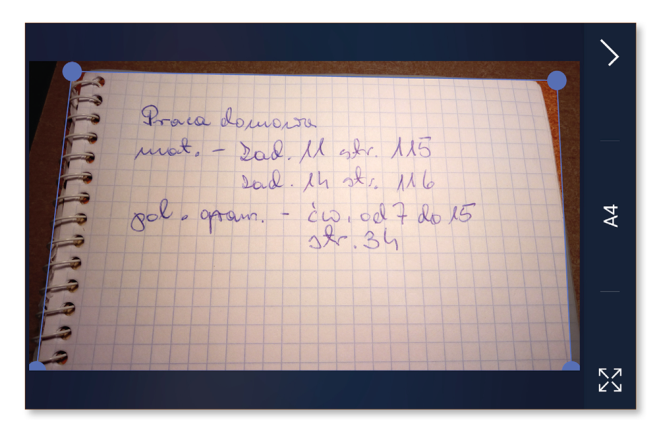 Praca domowa
mat. - zad. 11 str. 115
zad. 14 str. 116
pol. gram. - ćw. od 7 do 15
str. 34
A4